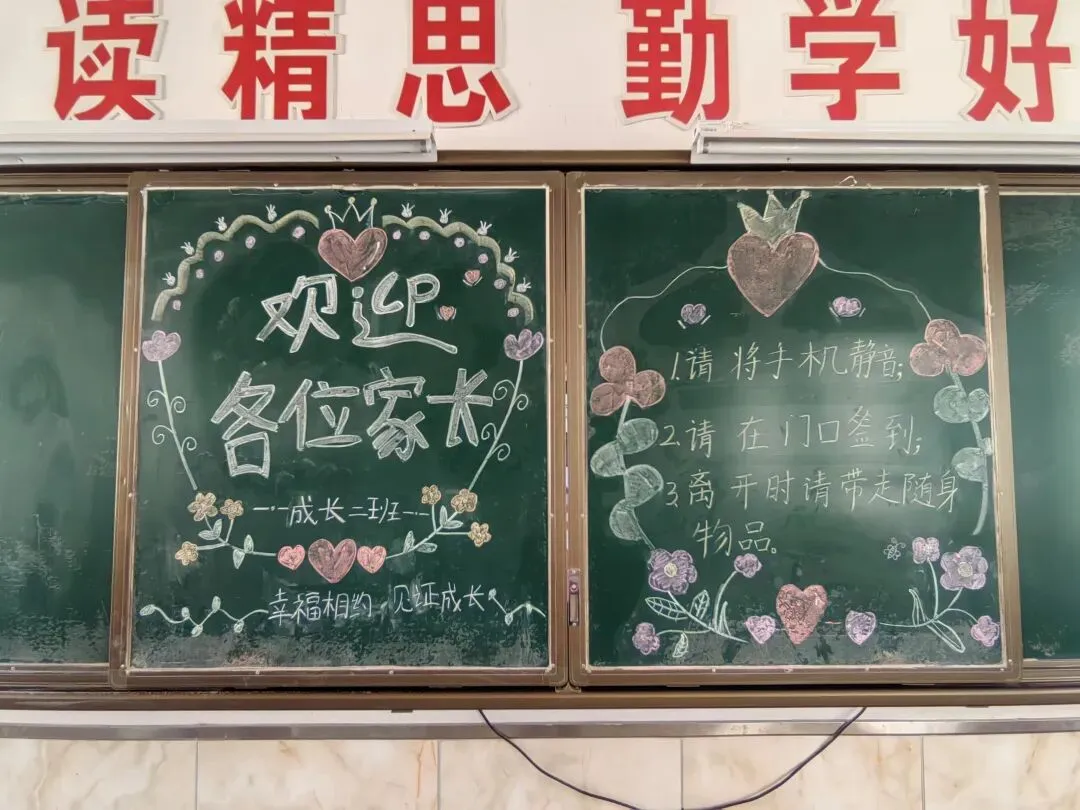 读精思 勤学好
欢迎
各位家长
成长二班
幸福相约 见证成长
1.请将手机静音;
2.请在门口签到;
3.离开时请带走随身
物品。